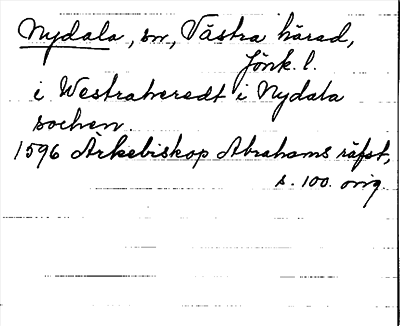 Nydala, sn, Västra härad,
Jönk. l.
i Westrahæredt i Nydala
sochèn
1596 Ärkebiskop Abrahams räfst,
s. 100. orig.